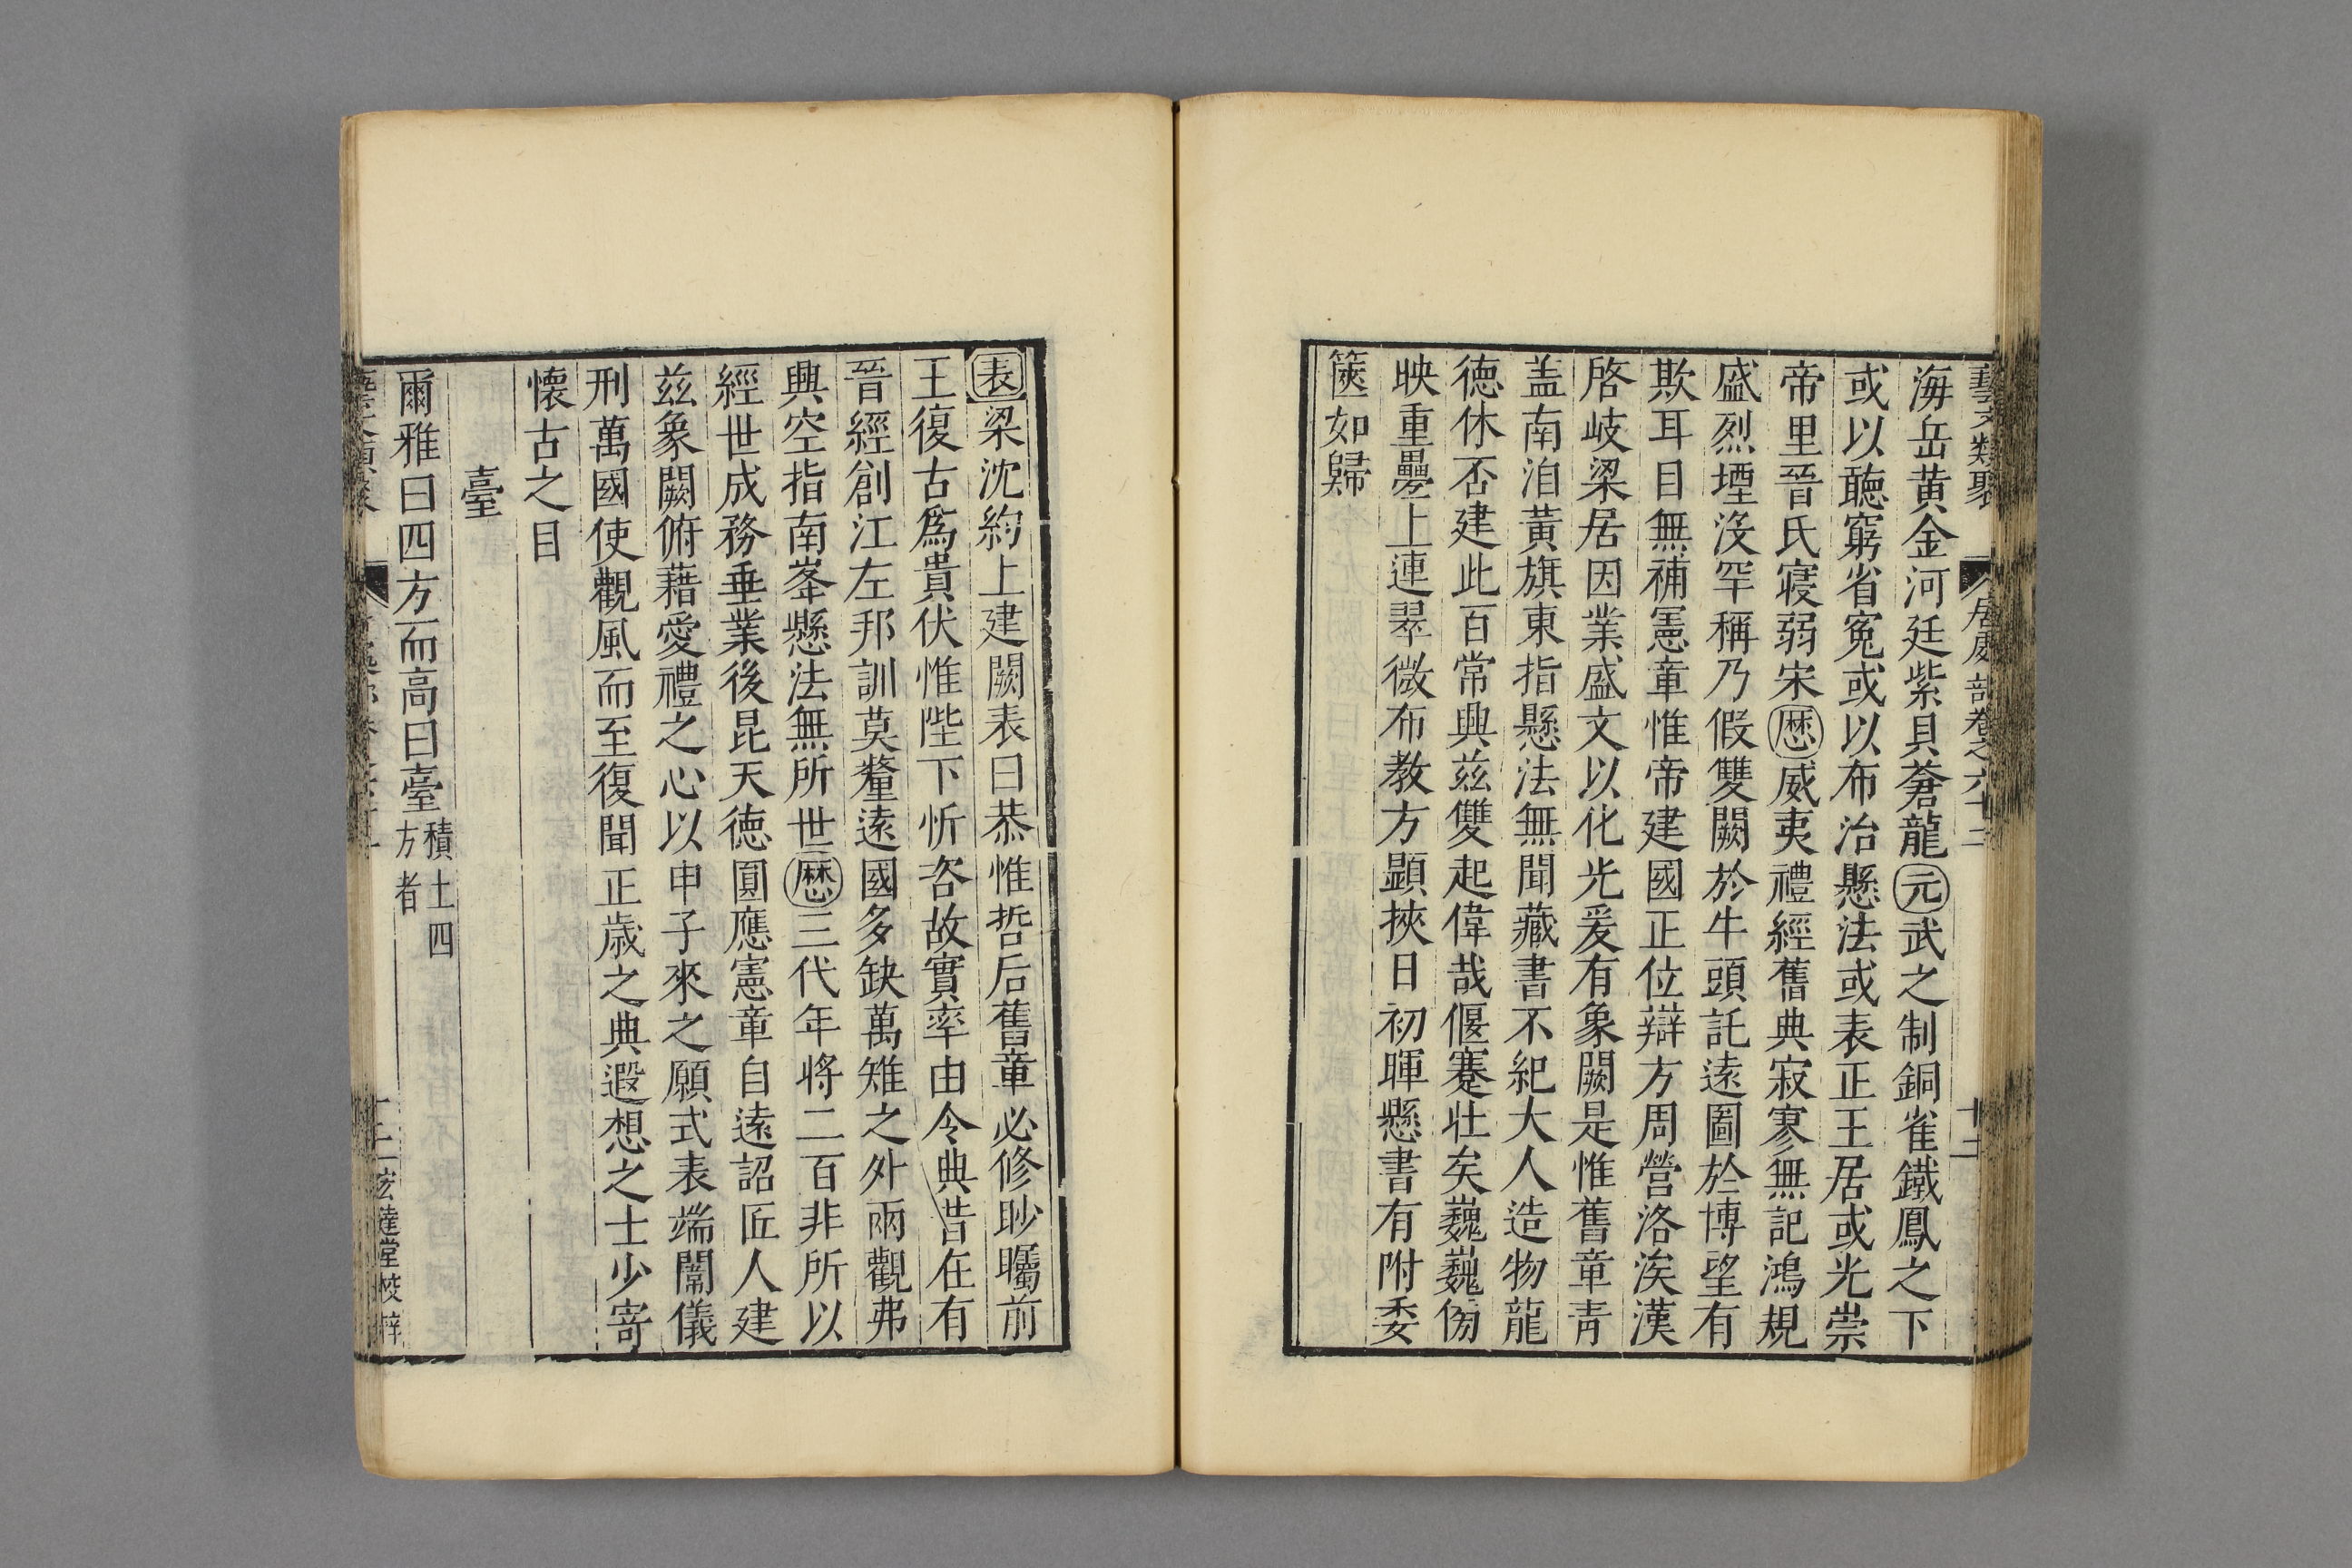 藝文類聚 居處部卷之六十二 十二
海岳黃金河廷紫貝蒼龍元武之制銅雀鐵鳳之下
或以聽窮省寃或以布治懸法或表正王居或光崇
帝里晉氏寖弱宋歷威夷禮經舊典寂寥無記鴻規
盛烈堙沒罕稱乃假雙闕於牛頭託遠圖於博望有
欺耳目無補憲章惟帝建國正位辯方周營洛涘漢
啓岐梁居因業盛文以化光爰有象闕是惟舊章青
盖南洎黃旗東指懸法無聞藏書不紀大人造物龍
德休否建此百常興茲雙起偉哉偃蹇壯矣巍巍傍
映重疊上連翠微布教方顯挾日初暉懸書有附委
篋如歸
表梁沈約上建闕表曰恭惟哲后舊章必修眇矚前
王復古爲貴伏惟陛下忻咨故實率由令典昔在有
晉經創江左邦訓莫釐遠國多缺萬雉之外兩觀弗
興空指南峯懸法無所世歷三代年將二百非所以
經世成務垂業後昆天德圓應憲章自遠詔匠人建
茲象闕俯藉愛禮之心以申子來之願式表端闈儀
刑萬國使觀風而至復聞正歲之典遐想之士少寄
懷古之目
臺
爾雅曰四方而高曰臺積土四方者
宏達堂